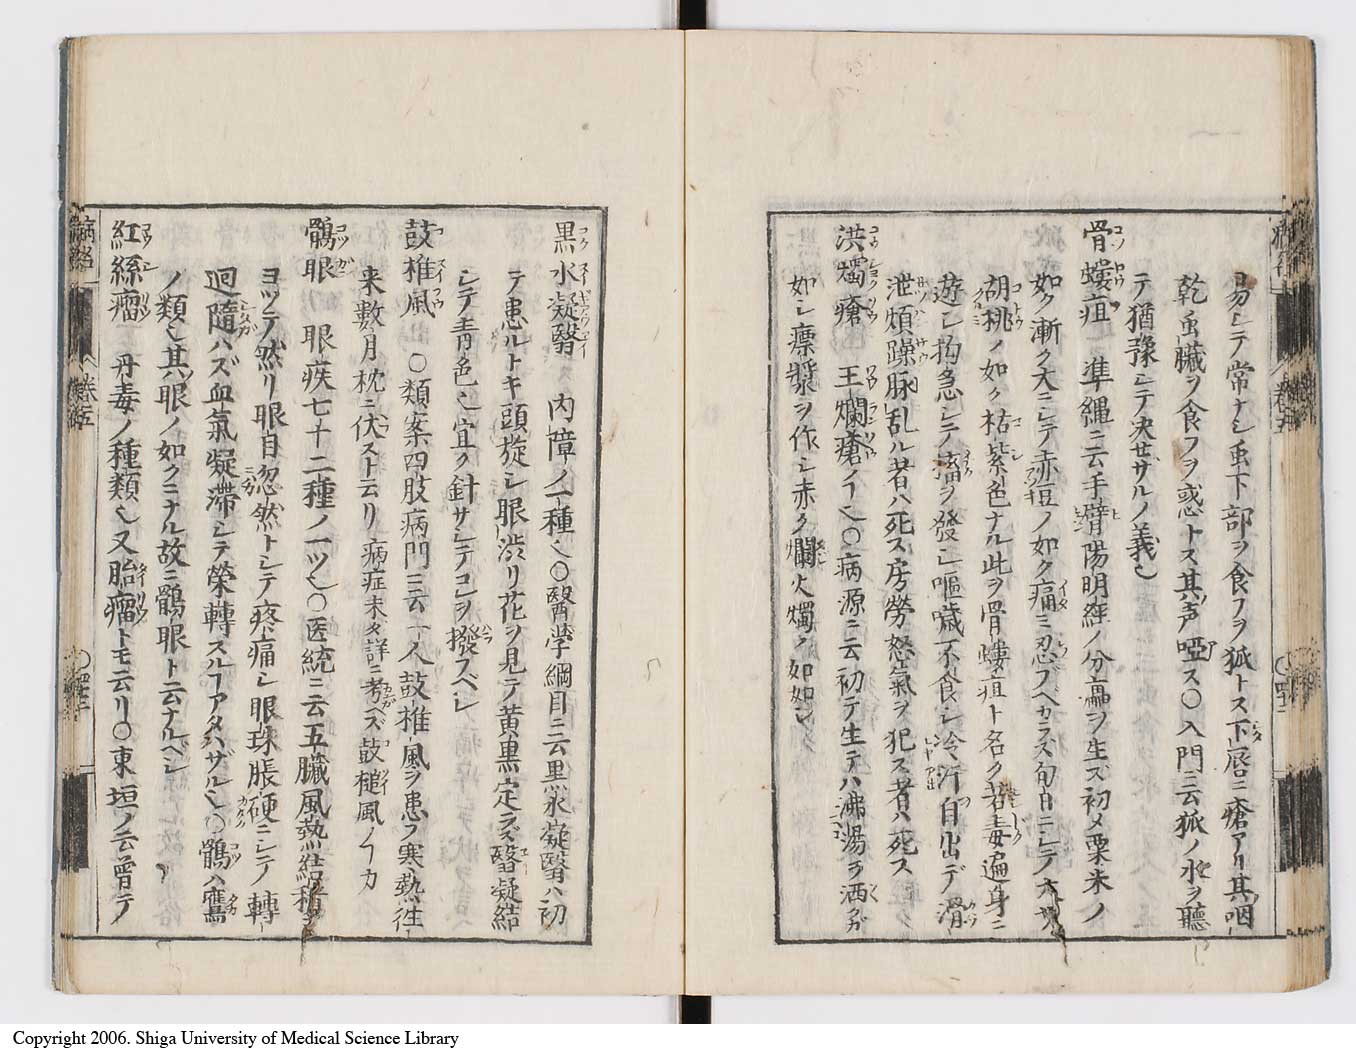 易シテ常ナシ虫下部ヲ食フヲ狐トス下唇ニ瘡アリ其咽
乾虫臓ヲ食フヲ惑トス其声啞ス○入門ニ云狐ノ氷ヲ聽
テ猶豫シテ决せザルノ義也
骨螻疽 準繩ニ云手臂陽明經ノ分ニ瘡ヲ生ズ初メ粟米ノ
如ク漸ク大ニシテ赤豆ノ如ク痛ミ忍フベカラス旬日ニシテ大サ
胡桃ノ如ク枯紫色ナル此ヲ骨螻疽ト名ク若毒遍身ニ
遊シ拘急シテ搐ヲ發シ嘔噦不食シ冷汗自出デ滑
泄煩躁脉乱ル者ハ死ス房勞怒氣ヲ犯ス者ハ死ス
洪燭瘡 王爛瘡ノ㕝也○病源ニ云初テ生テハ沸湯ヲ洒ガ
如シ瘭漿ヲ作シ赤ク爛火燭ク如如シ
黒水凝翳 内障ノ一種也○醫学綱目ニ云黒水凝翳ハ初
テ患ルトキ頭旋シ眼渋リ花ヲ見テ黄黒定ラズ翳凝結
シテ青色也宜ク針サシテコレヲ撥スベシ
鼓椎風 ○類案四肢病門ニ云一人鼓椎風ヲ患フ寒熱往
来數月枕ニ伏スト云リ 病症未タ詳ニ考ヘズ鼓槌風ノ㕝カ
鶻眼 眼疾七十二種ノ一ツ也○医統ニ云五臓風熱結積ニ
ヨツテ然リ眼目忽然トシテ疼痛シ眼珠脹硬ニシテ轉
迴隨ハズ血氣凝滯シテ榮轉スル㕝アタハザル也○鶻ハ鷹
ノ類也其眼ノ如クニナル故ニ鶻眼ト云ナルベシ
紅絲瘤 丹毒ノ種類也又胎瘤トモ云リ○東垣ノ云曽テ
病名
巻五
○四十二
Copyright 2006. Shiga University of Medical Science Library